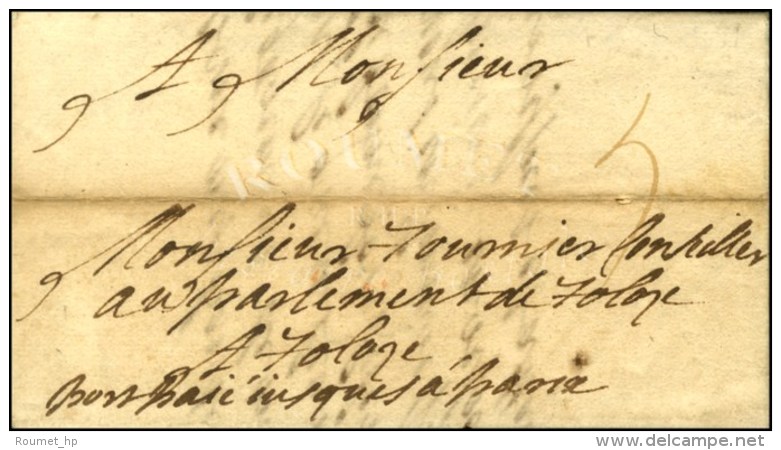 A Monsieur
ROUMET
5
Monsieur Tournier Conseiller
au parlement de Toloze
A Toloze
port paié iusques a paris
Roumet_hp
delcampe.net